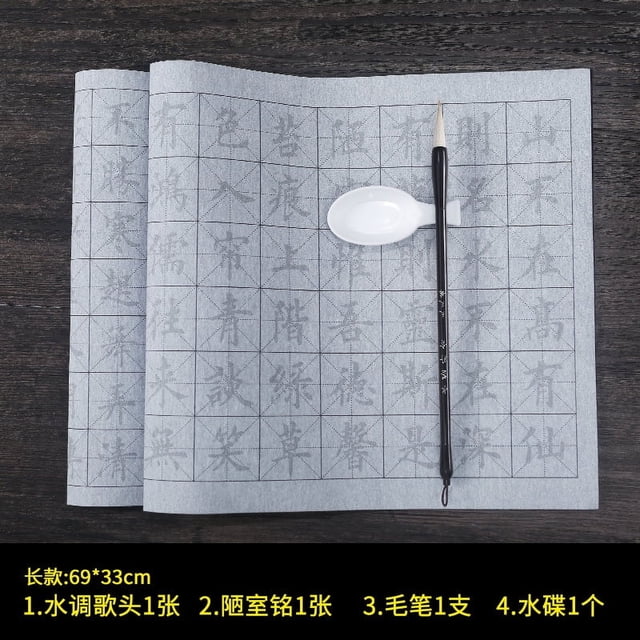 山不在高有仙
則名水不在深
有則靈斯是
陋惟吾德馨
苔痕上階綠草
色入帘青談笑
有鴻儒往來無
不勝寒起舞弄清
长款:69*33cm
1.水调歌头1张 2.陋室铭1张 3.毛笔1支 4.水碟1个